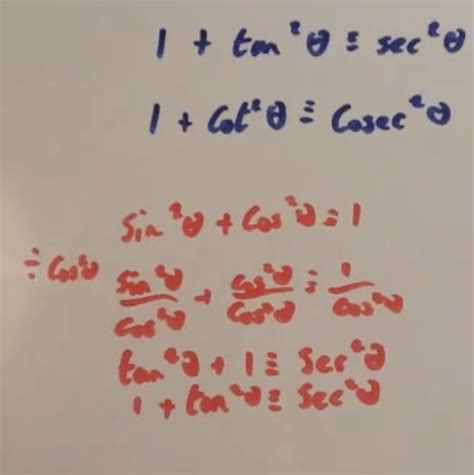 1 + tan²θ ≡ sec²θ
1 + Cot²θ ≡ Cosec²θ
Sin²θ + Cos²θ ≡ 1
÷ Cos²θ Sin²θ/Cos²θ + Cos²θ/Cos²θ ≡ 1/Cos²θ
tan²θ + 1 ≡ Sec²θ
1 + tan²θ ≡ Sec²θ